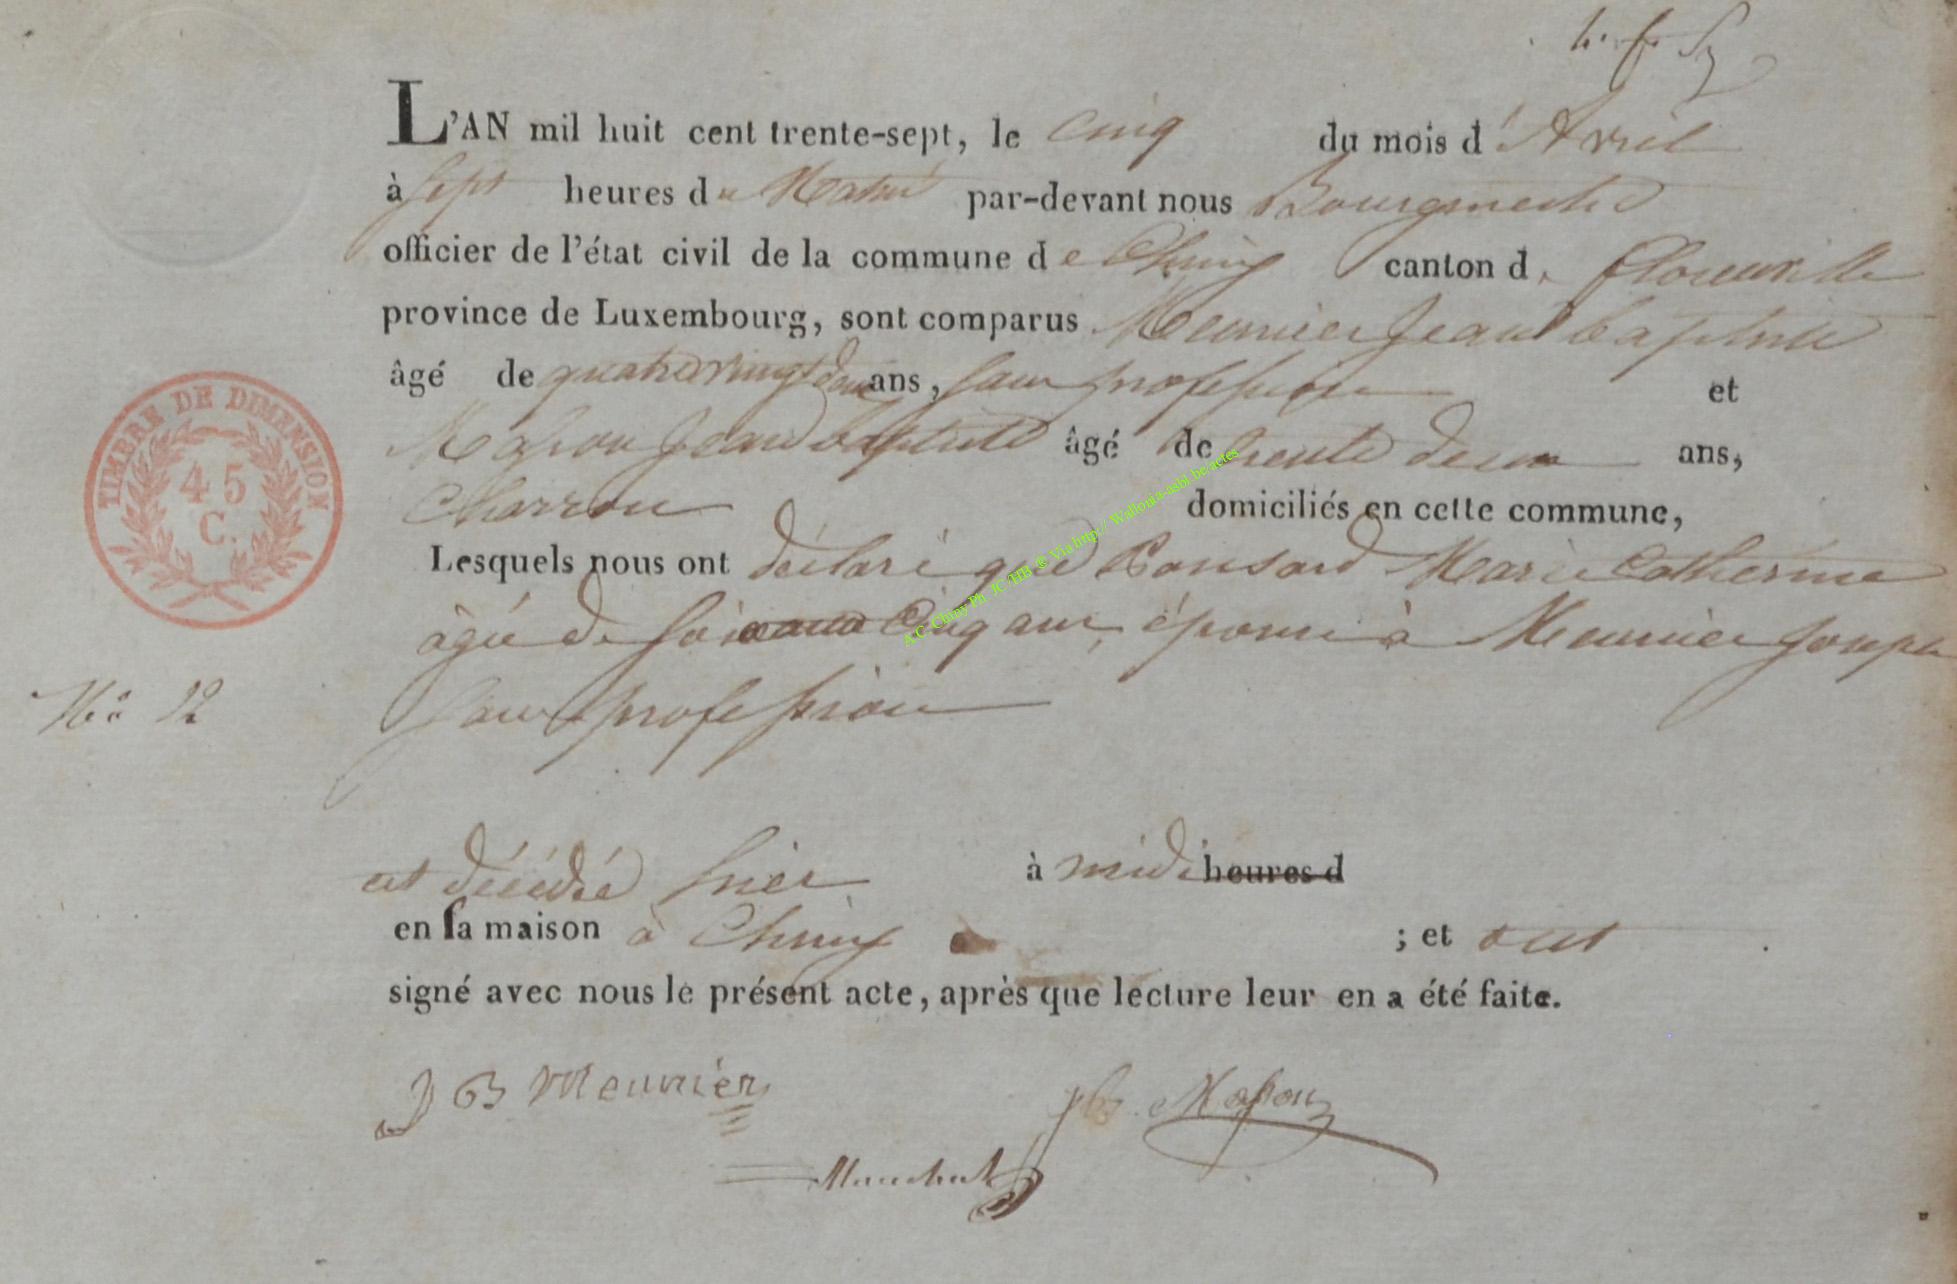 L'AN mil huit cent trente-sept, le cinq du mois d'Avril
à sept heures du Matin par-devant nous Bourgmestre
officier de l'état civil de la commune de Chiny canton de Florenville
province de Luxembourg, sont comparus Meunier Jean baptiste
âgé de quatrevingt deux ans, sans profession et
Masson Jean baptiste âgé de trente deux ans,
Charron domiciliés en cette commune,
Lesquels nous ont déclaré que Ponsard Marie Catherine
âgée de soixante Cinq ans, épouse à Meunier Joseph
sans profession
No 12
est décédée hier à midi heures d
en sa maison à Chiny ; et ont
signé avec nous le présent acte, après que lecture leur en a été faite.
J B Meunier
JB Masson
TIMBRE DE DIMENSION
45
C.
A.C. Chiny Ph JC/HB ® Via http:// Wallonia-asbl.be/actes